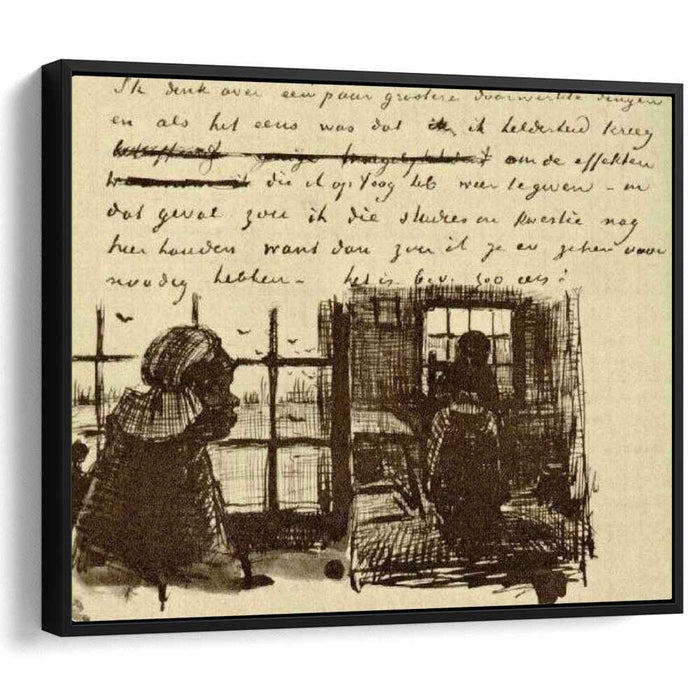 Ik denk over een paar grootere doorwerkte dingen
en als het eens was dat ik helderheid kreeg
om de effekten
die ik op 't oog heb weer te geven – in
dat geval zou ik die studies in kwestie nog
hier houden want dan zou ik ze er zeker voor
noodig hebben – het is b.v. zoo iets: